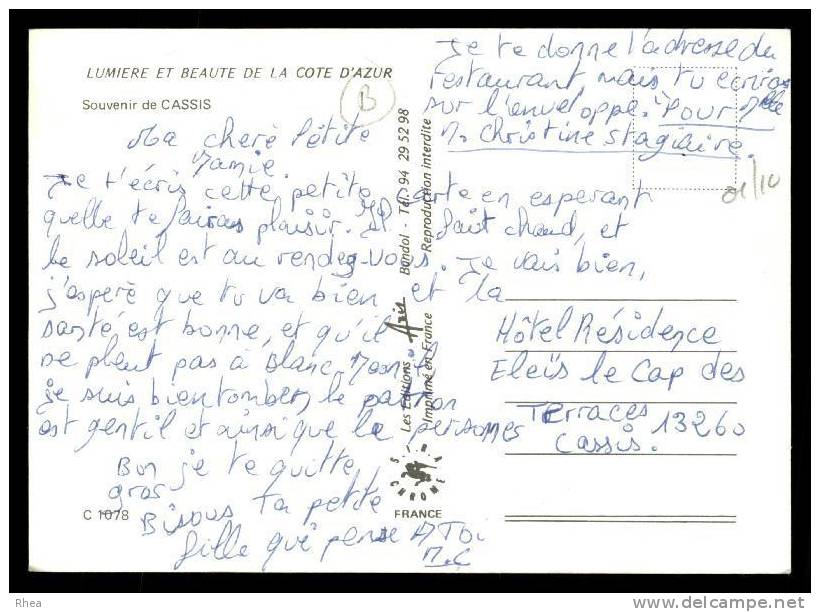 LUMIERE ET BEAUTE DE LA COTE D'AZUR
Souvenir de CASSIS
B
Je te donne l'adresse du
restaurant mais tu écriras
sur l'enveloppe. Pour Melle
M. Christine Stagiaire.
01/10
Ma cherè Pétite
Mamie.
Je t'écris cette petite carte en esperant
quelle te fairas plaisir. Il fait chaud, et
le soleil est au rendez-vous. Je vais bien,
j'asperè que tu va bien et la
santé est bonne, et qu'il
ne pleut pas à Blanc-
je suis bien tomber, le patron
est gentil et ainsi que le personnes
Bon je te quitte
gros
Bisous ta petite
fille qui pense A Toi
M.C
Hôtel Résidence
Eleïs le Cap des
Terraces 13260
Cassis.
Les Editions Axis Bandol - Tél. 94 29 52 98
Imprimé en France Reproduction interdite
C 1078
FRANCE
Rhea
www.delcampe.net